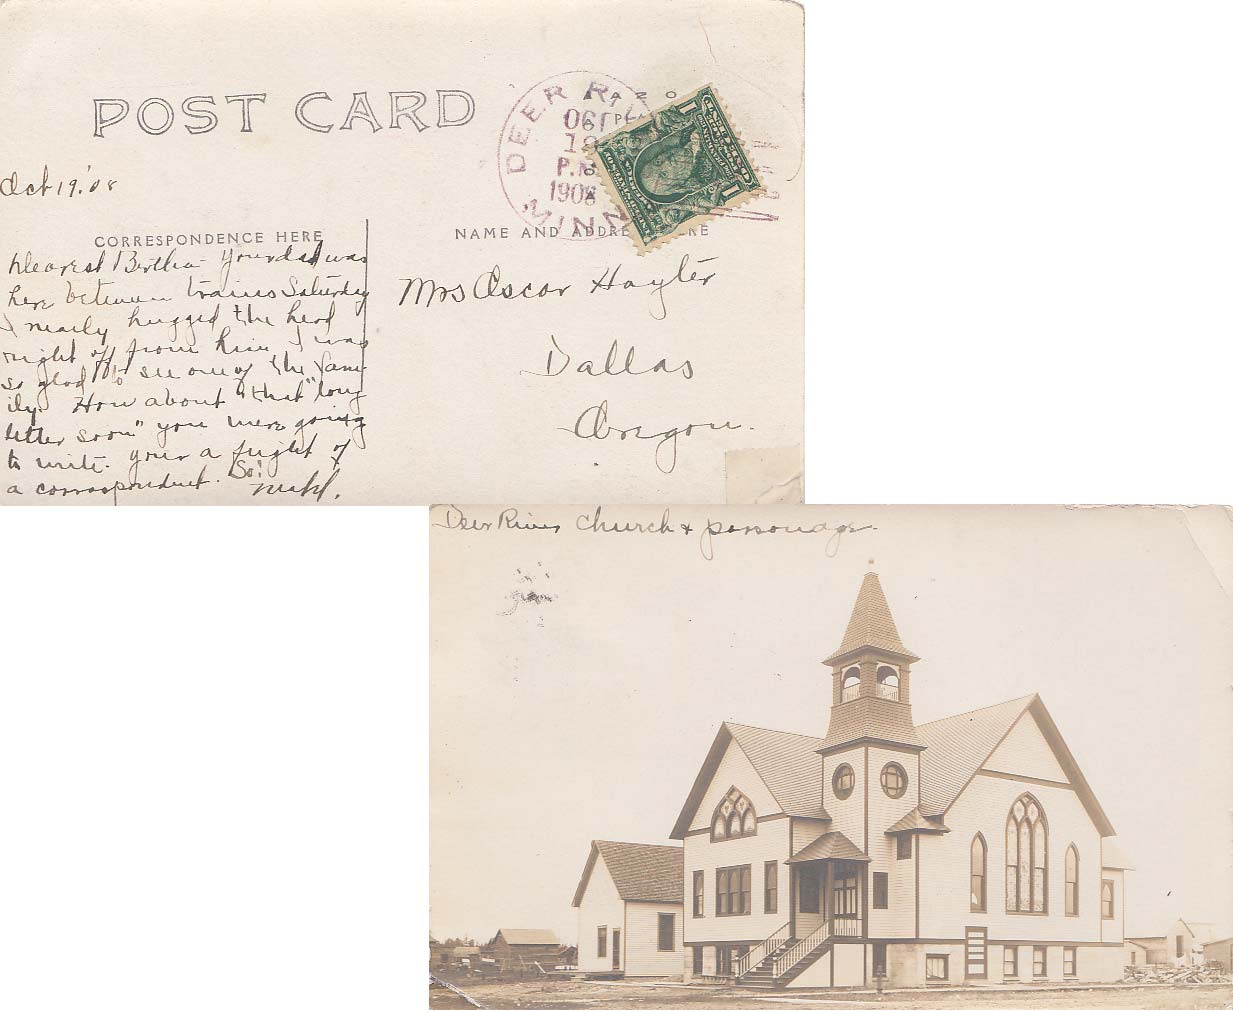 POST CARD
DEER RIV
OCT
19
P.M.
1908
MINN
Oct 19, '08
CORRESPONDENCE HERE
NAME AND ADDRE RE
Dearest Bertha- Your dad was
here between trains Saturday
I nearly hugged the head
right off from him, I was
so glad to see one of the fam-
ily. How about "that "long
letter soon" you were going
to write. your a fright of
a correspondent. So!
Mrs Oscar Hayter
Dallas
Oregon.
Deer River Church & parsonage.